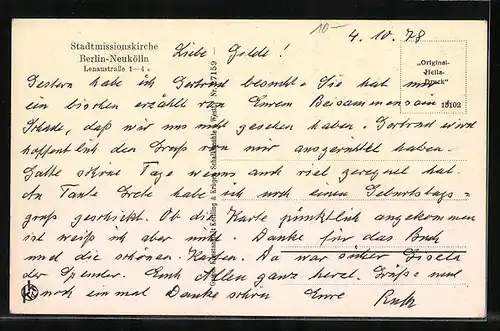 10-
4.10.78
Stadtmissionskirche
Berlin-Neukölln
Lenaustraße 1—4
Liebe Gilde!
„Original-
Hella-
Druck"
15102
Gestern habe ich Gertrud besucht. Sie hat mir
ein bischen erzählt von Eurem Beisammensein
Schade, daß wir uns nicht gesehen haben. Gertrud wird
hoffentlich den Gruß von mir ausgerichtet haben.
Hatte schöne Tage wenns auch viel geregnet hat.
An Tante Grete habe ich noch einen Geburtstags=
gruß geschickt. Ob die Karte pünktlich angekommen
ist weiß ich aber nicht. Danke für das Buch
und die schönen Karten. Da war sicher Gisela
der Spender. Euch Allen ganz herzl. Grüße und
noch einmal Danke schön Eure Ruth
Schöning & Krüger, Schalksmühle i. Westf. Nr. 27159